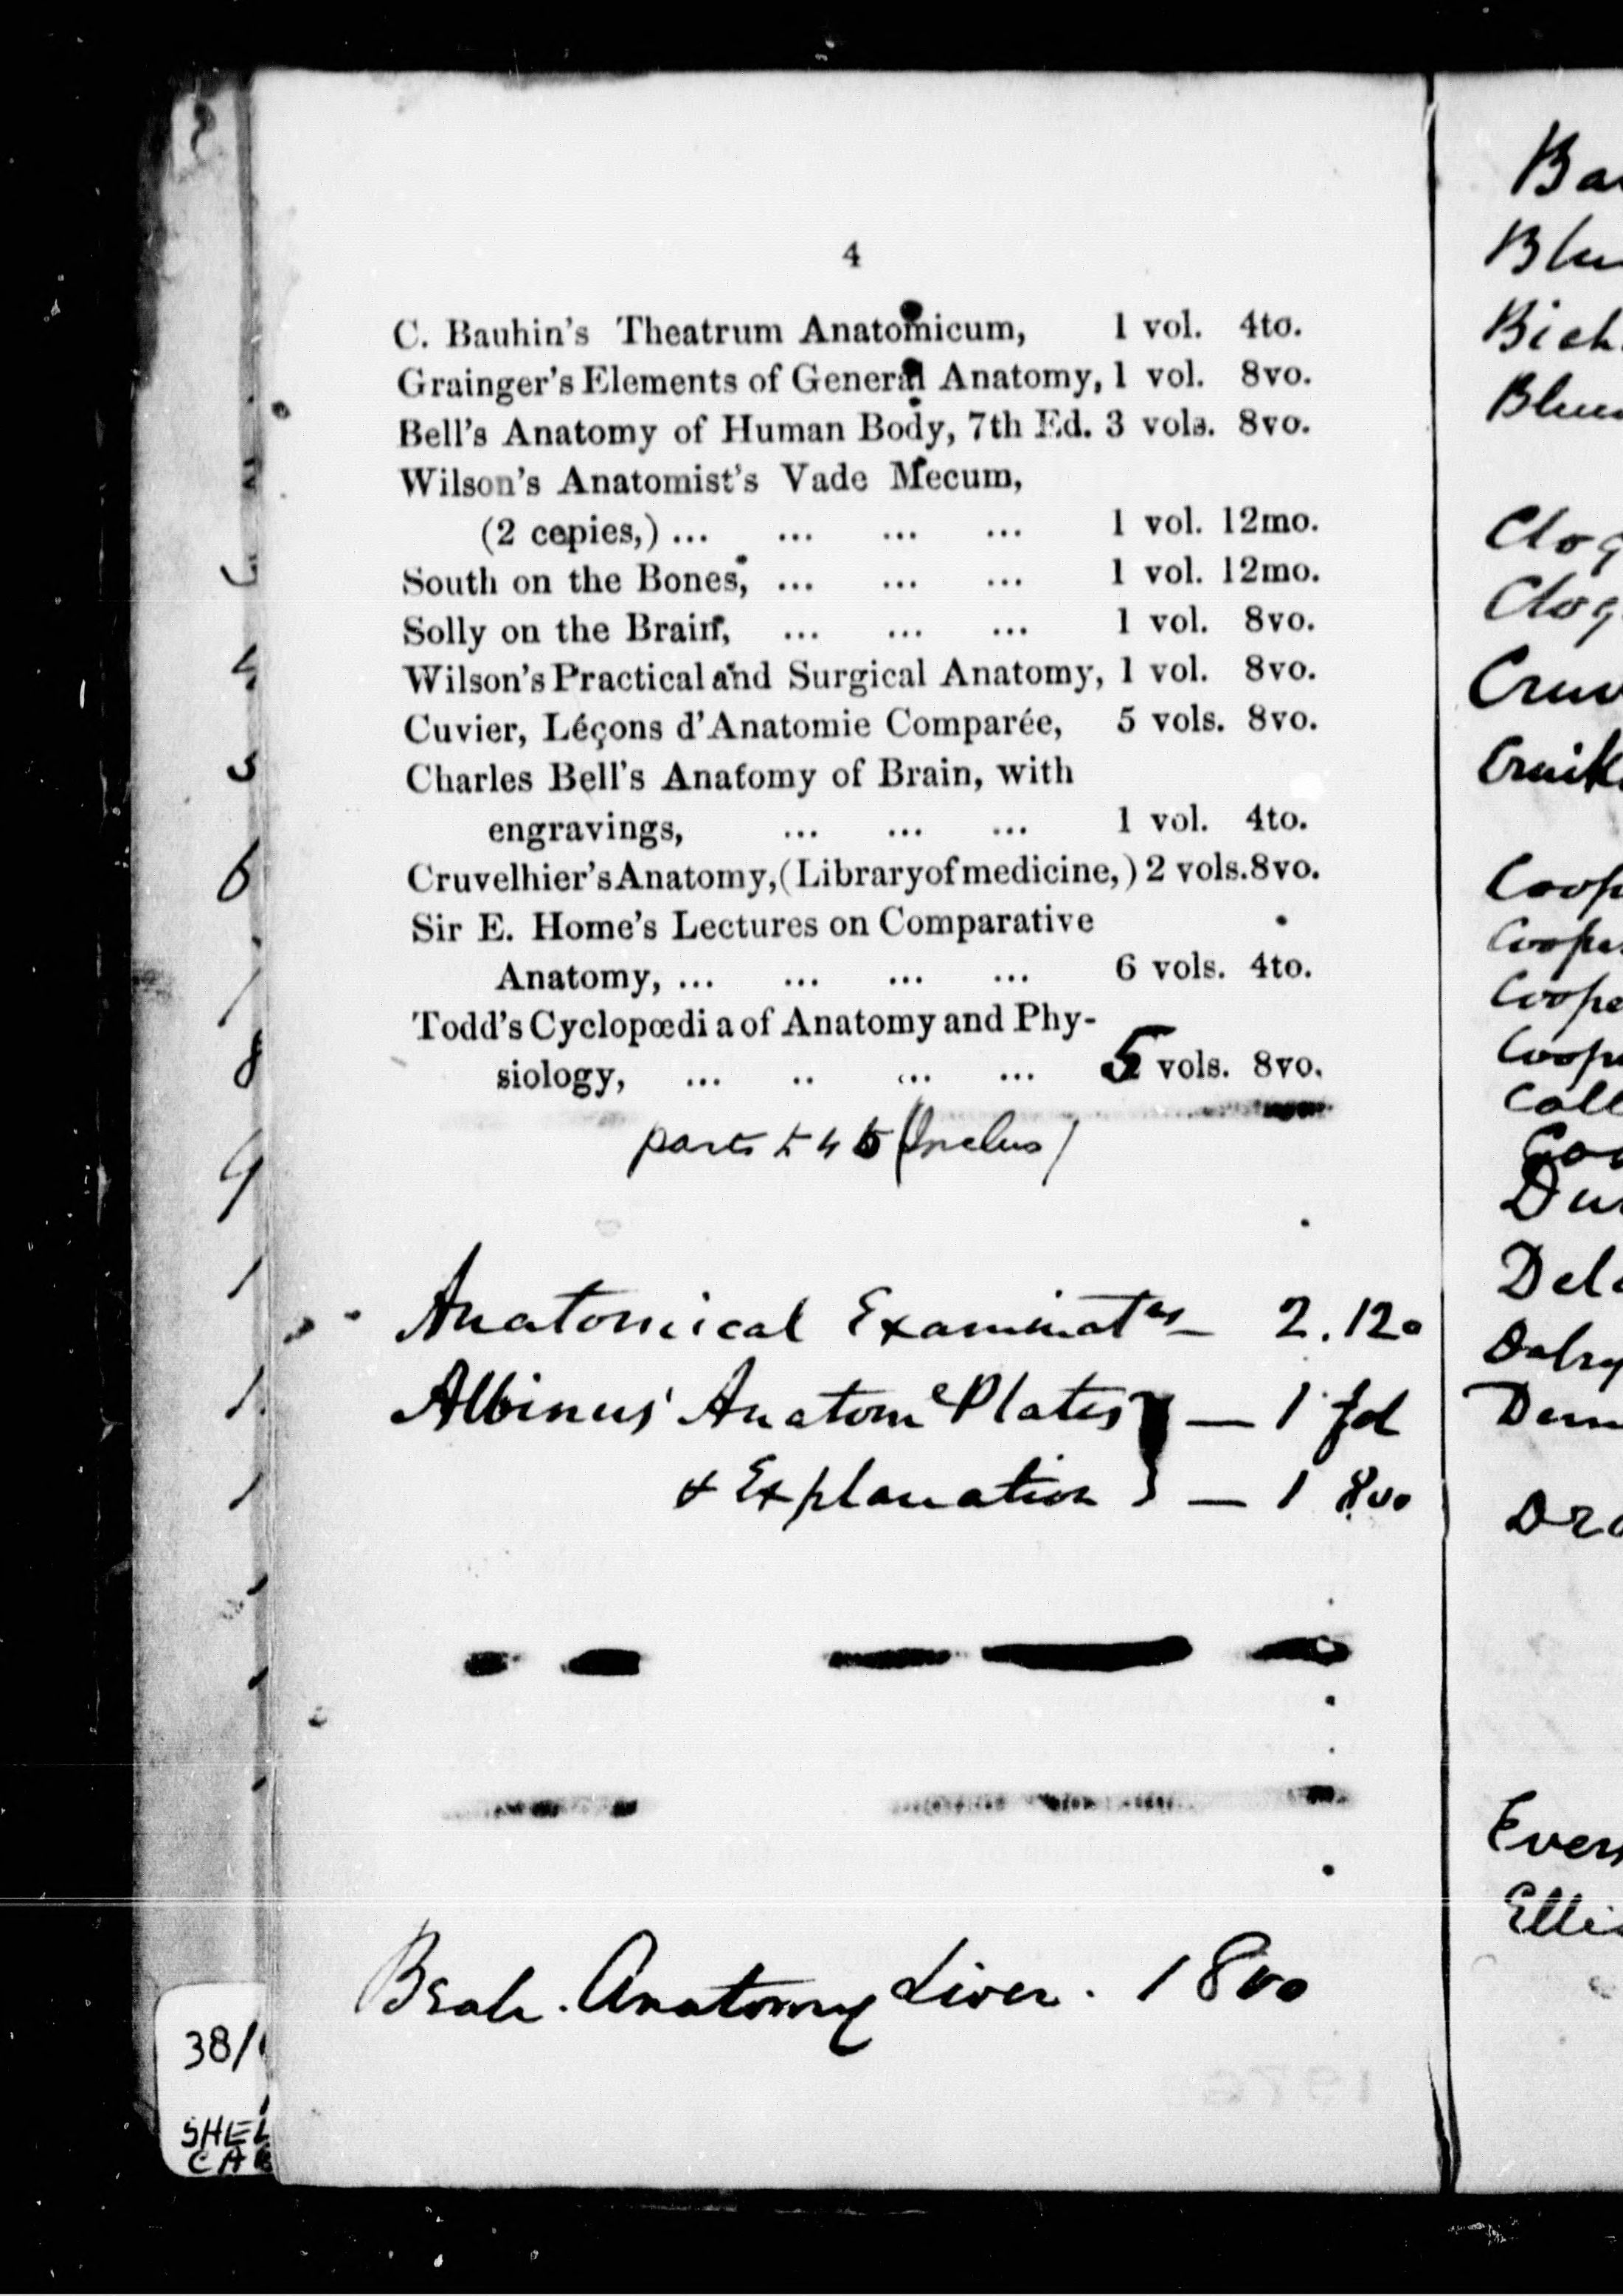 4
C. Bauhin's Theatrum Anatomicum, 1 vol. 4to.
Grainger's Elements of General Anatomy, 1 vol. 8vo.
Bell's Anatomy of Human Body, 7th Ed. 3 vols. 8vo.
Wilson's Anatomist's Vade Mecum,
(2 cepies,) ... ... ... ... 1 vol. 12mo.
South on the Bones, ... ... ... 1 vol. 12mo.
Solly on the Brain, ... ... ... 1 vol. 8vo.
Wilson's Practical and Surgical Anatomy, 1 vol. 8vo.
Cuvier, Léçons d'Anatomie Comparée, 5 vols. 8vo.
Charles Bell's Anatomy of Brain, with
engravings, ... ... ... 1 vol. 4to.
Cruvelhier's Anatomy, (Library of medicine,) 2 vols. 8vo.
Sir E. Home's Lectures on Comparative
Anatomy, ... ... ... ... 6 vols. 4to.
Todd's Cyclopœdia of Anatomy and Phy-
siology, ... .. ... ... 5 vols. 8vo.
parts (Inclus)
Anatomical Examinatns — 2. 12o
Albinus' Anatome Plates } — 1 fol
& Explanation } — 1 8vo
Anatomy Liver. 1 8vo
Ba
Blu
Bich
Blum
Cloq
Cloq
Cruv
Cruik
Coop
Coope
Coope
Coop
Call
Dela
Dalry
Evers
Elli
38/
SHEL
CAB